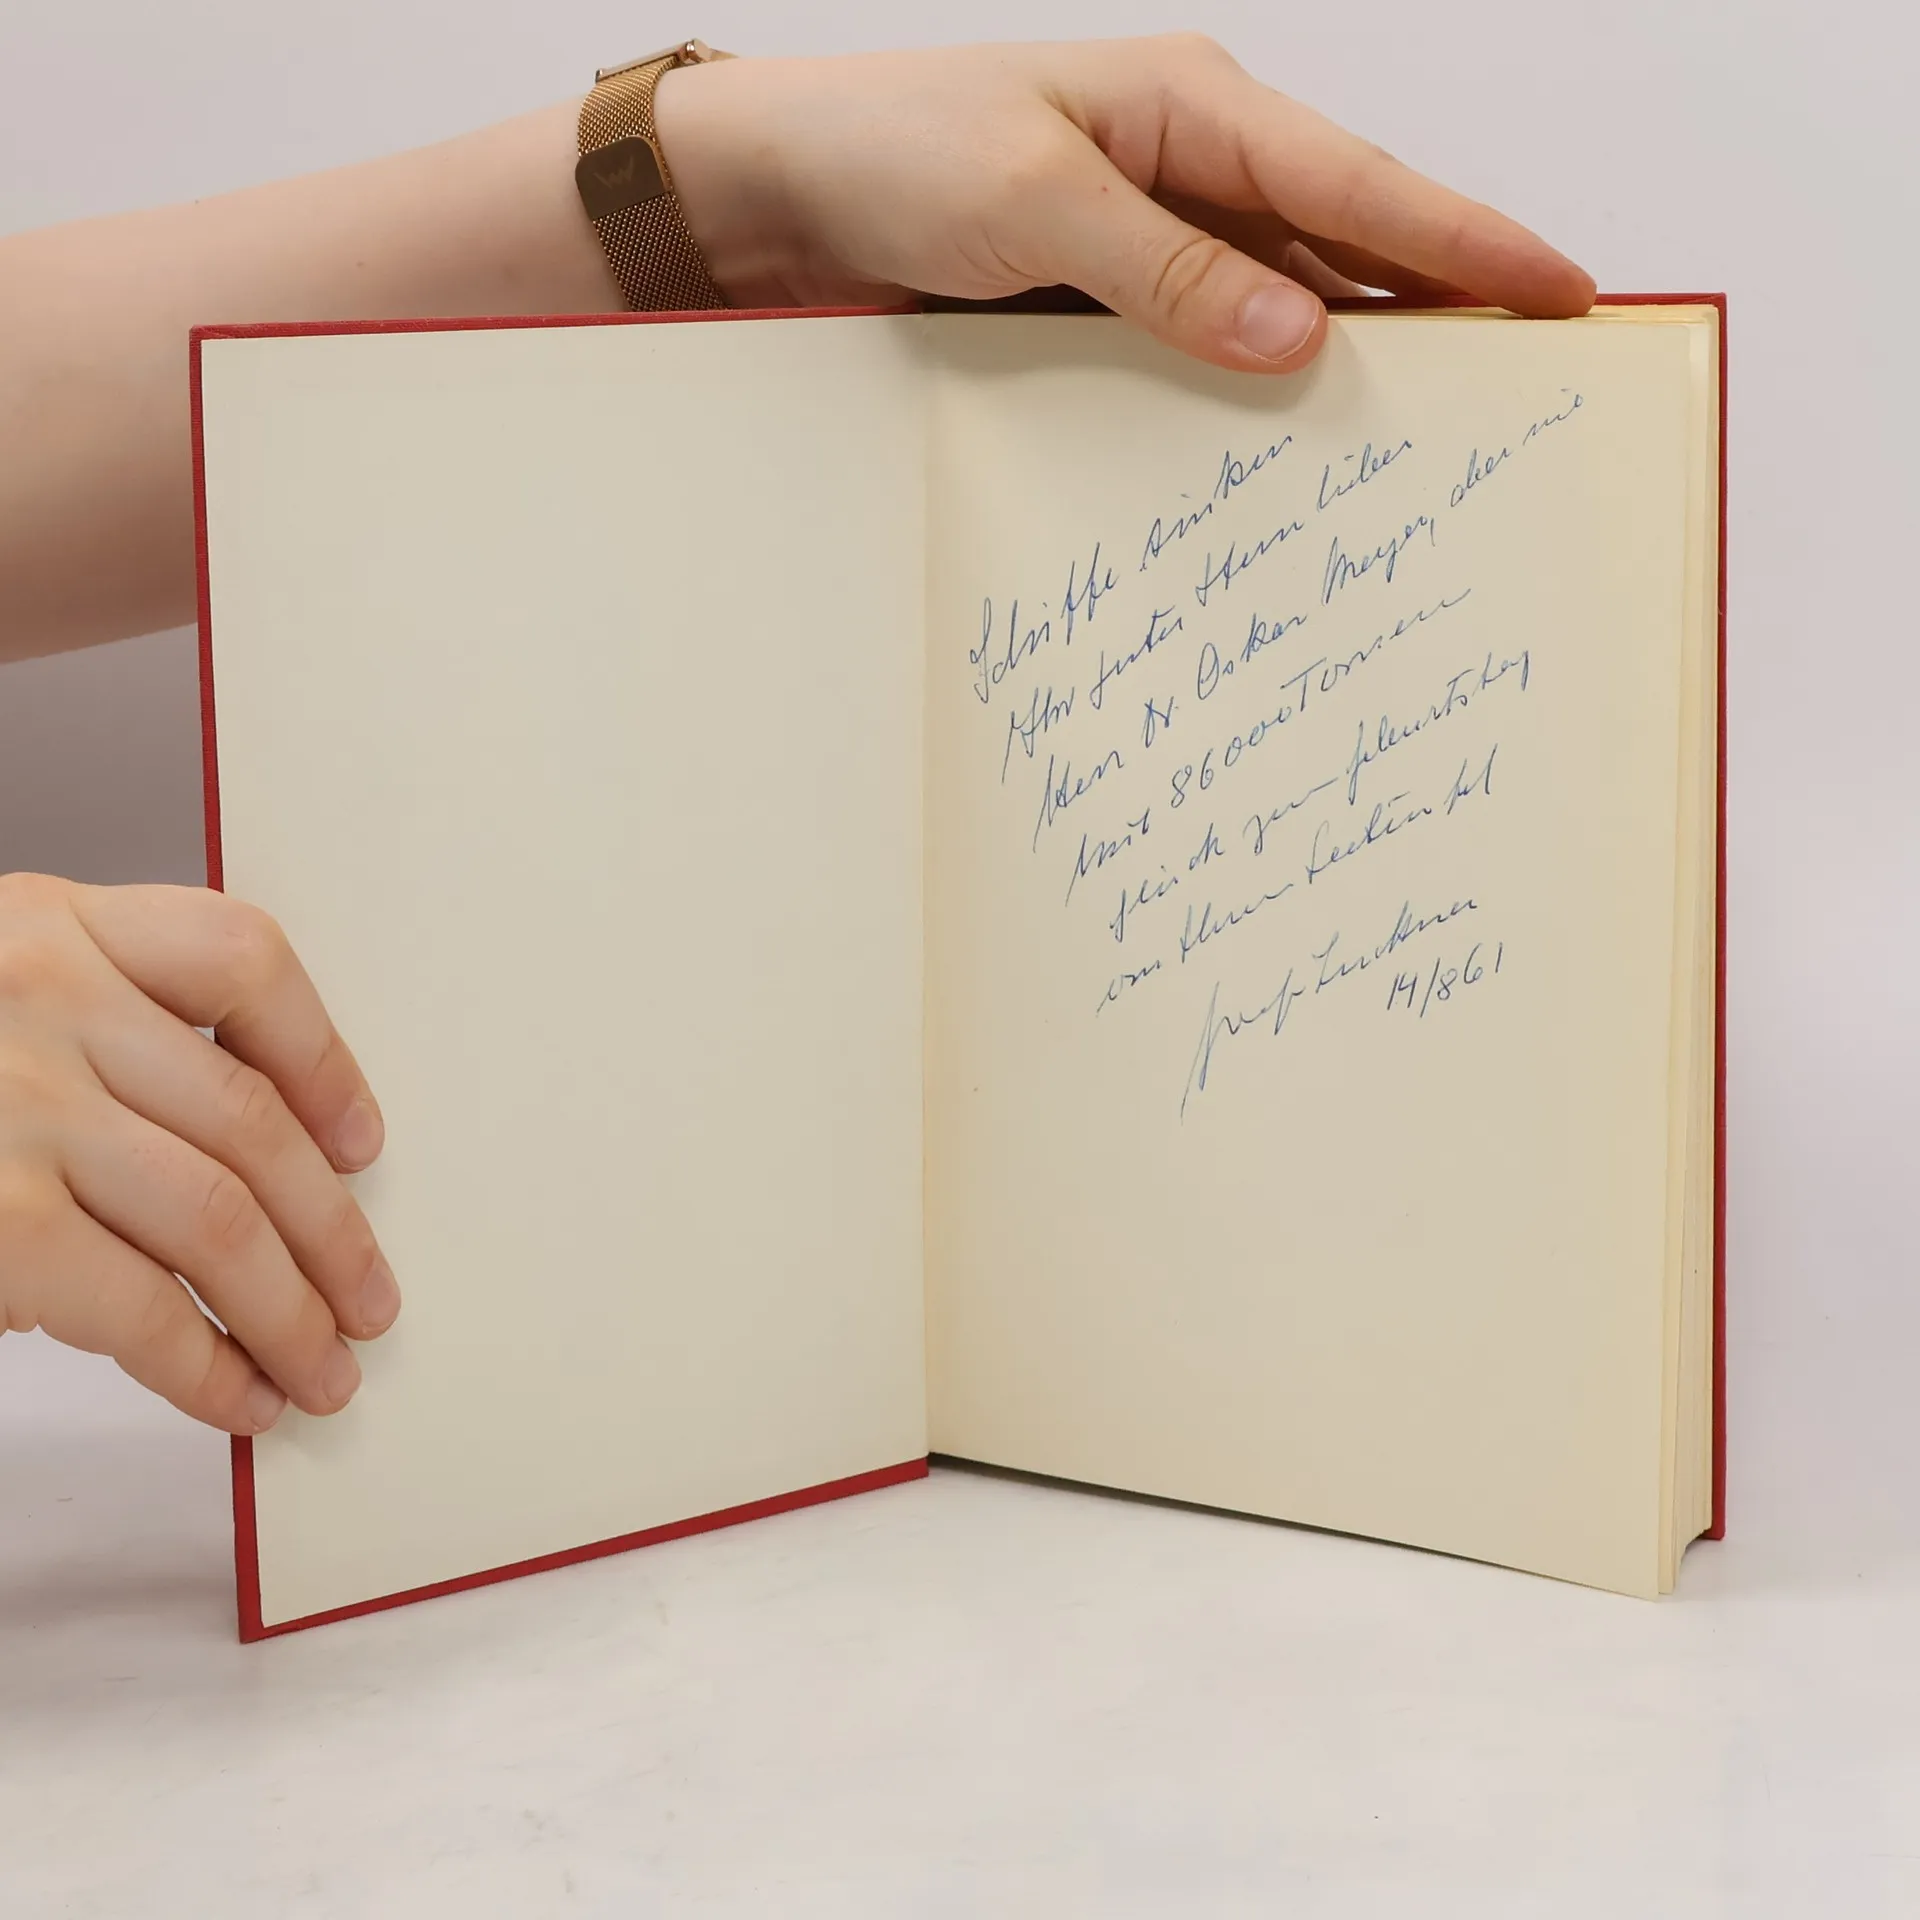 Schiffe sinken
Ihr guter Stern lieber
Herr Dr. Oskar Meyer, aber nie
Mit 86000 Tonnen
Glück zum Geburtstag
von Ihrem Seeteufel
Graf Luckner
14/861